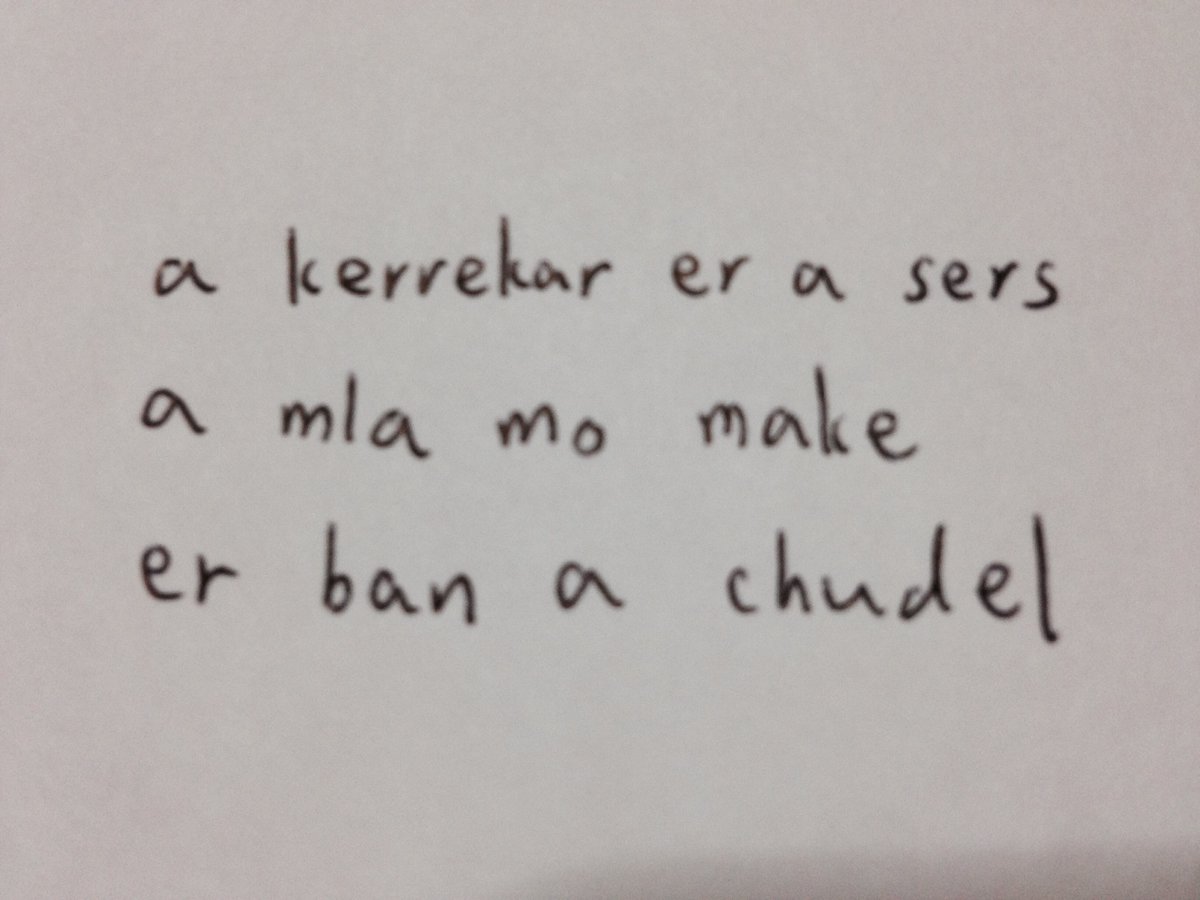 a kerrekar er a sers
a mla mo make
er ban a chudel